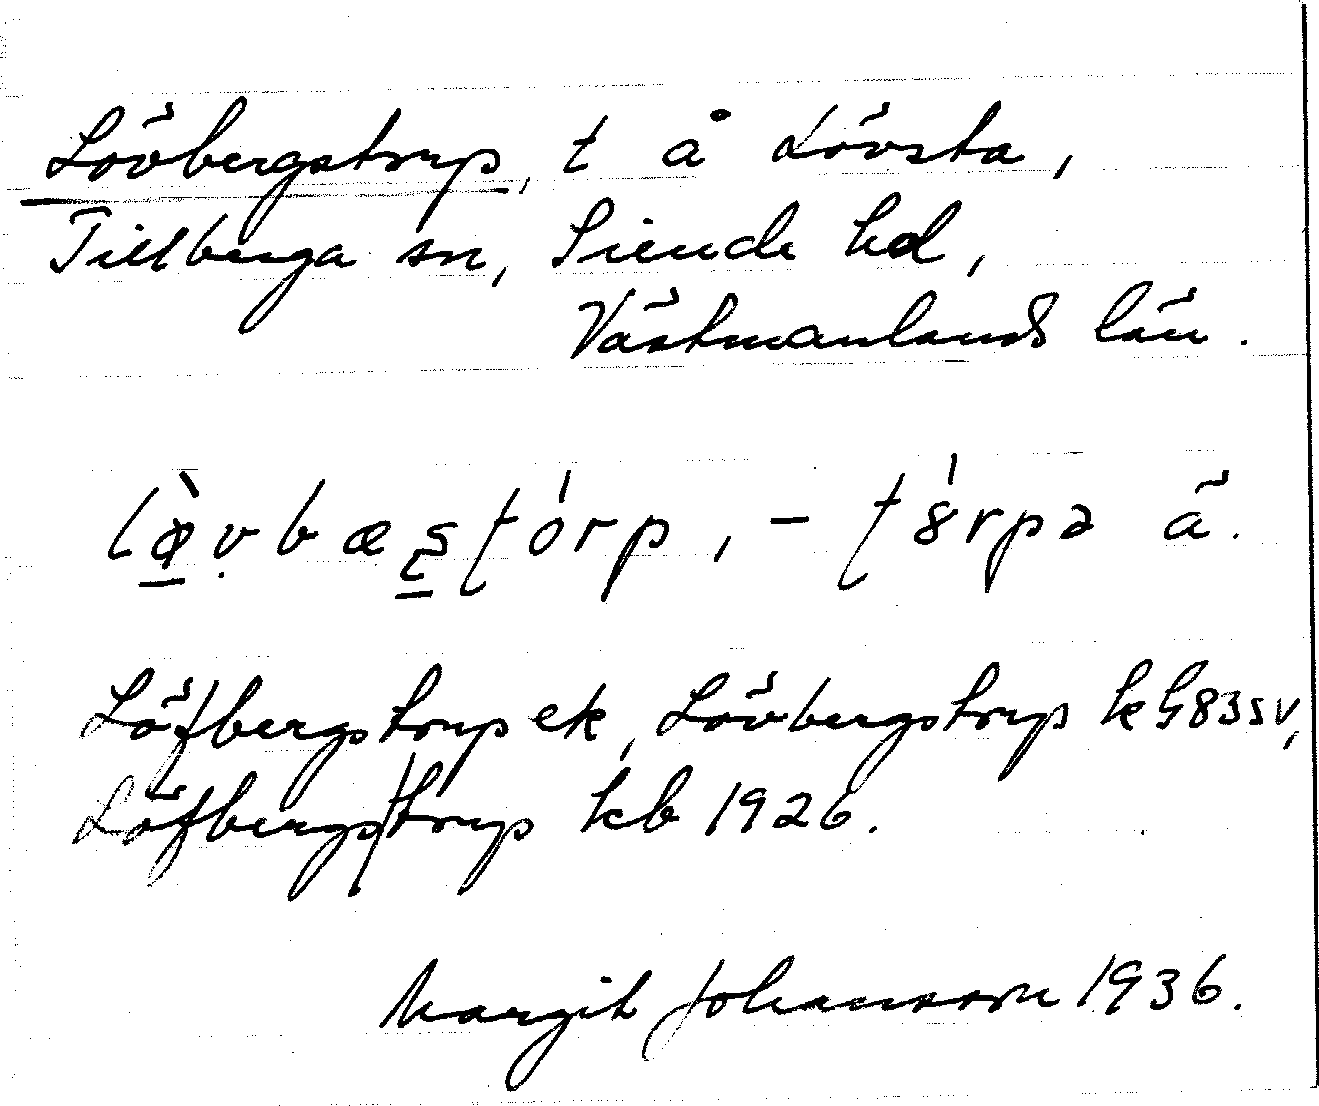 Lövbergstorp, t å Lövsta,
Tillberga sn, Siende hd,
Västmanlands län.
lø̀vbæʂʈórp, - ʈ8́rpə ä.
Löfbergstorp ek, Lövbergstorp k G83sv,
Löfbergstorp kb 1926.
Margit Johansson 1936.